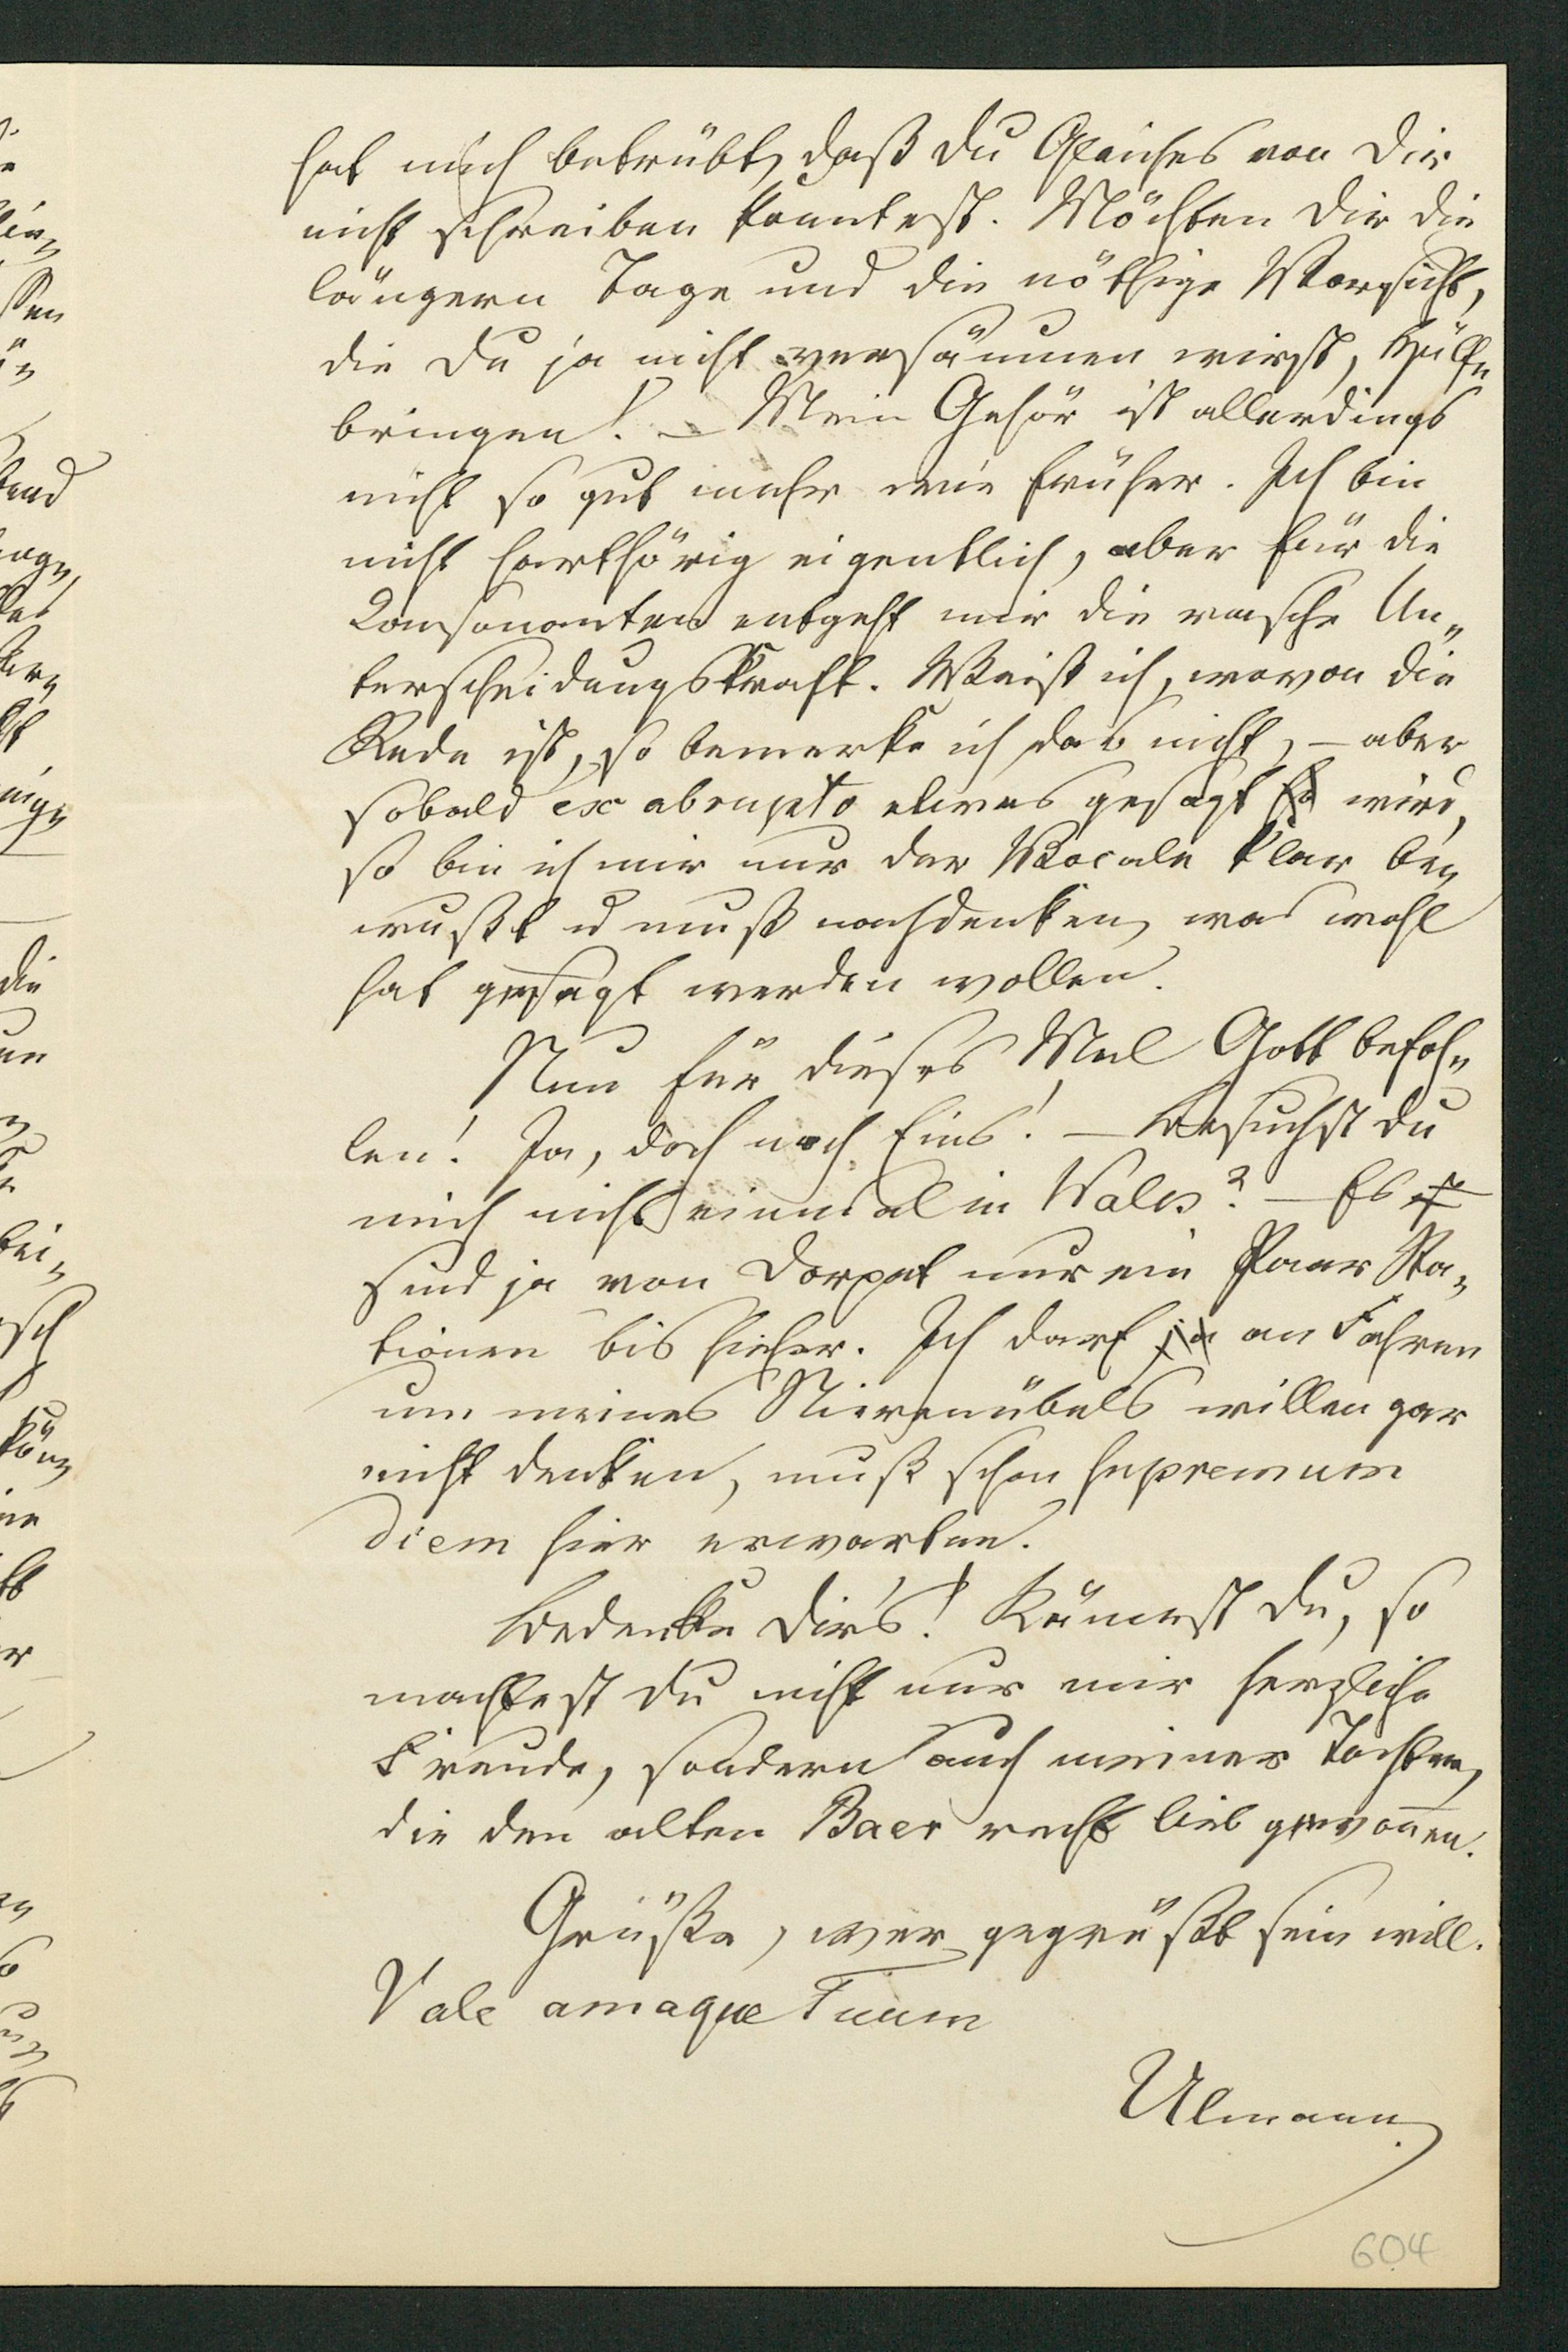 hat mich betrübt, daß Du Gleiches von Dir
nicht schreiben konntest. Möchten Dir die
längern Tage und die nöthige Vorsicht,
die Du ja nicht versäumen wirst, Hülfe
bringen! – Mein Gehör ist allerdings
nicht so gut mehr wie früher. Ich bin
nicht harthörig eigentlich, aber für die
Consonanten entgeht mir die rasche Un„
terscheidungskraft. Weiß ich, wovon die
Rede ist, so bemerke ich das nicht, – aber
sobald ex abrupto etwas gesagt wird,
so bin ich mir nur der Vocale klar be„
wußt u muß nachdenken, was wohl
hat gesagt werden wollen.
Nun für dieses Mal Gott befoh„
len! Ja, doch noch Eins! – Besuchst Du
mich nicht einmal in Walk? – Es
sind ja von Dorpat nur ein Paar Sta„
tionen bis hieher. Ich darf ja an Fahren
um meines Nierenübels willen gar
nicht denken, muß schon supremum
diem hier erwarten.
Bedenke Dir's! Kämest Du, so
machtest Du nicht nur mir herzliche
Freude, sondern auch meiner Tochter,
die den alten Baer recht lieb gewonnen.
Grüße, wer gegrüßt sein will.
Vale amaque Tuum
Ulmann.
604